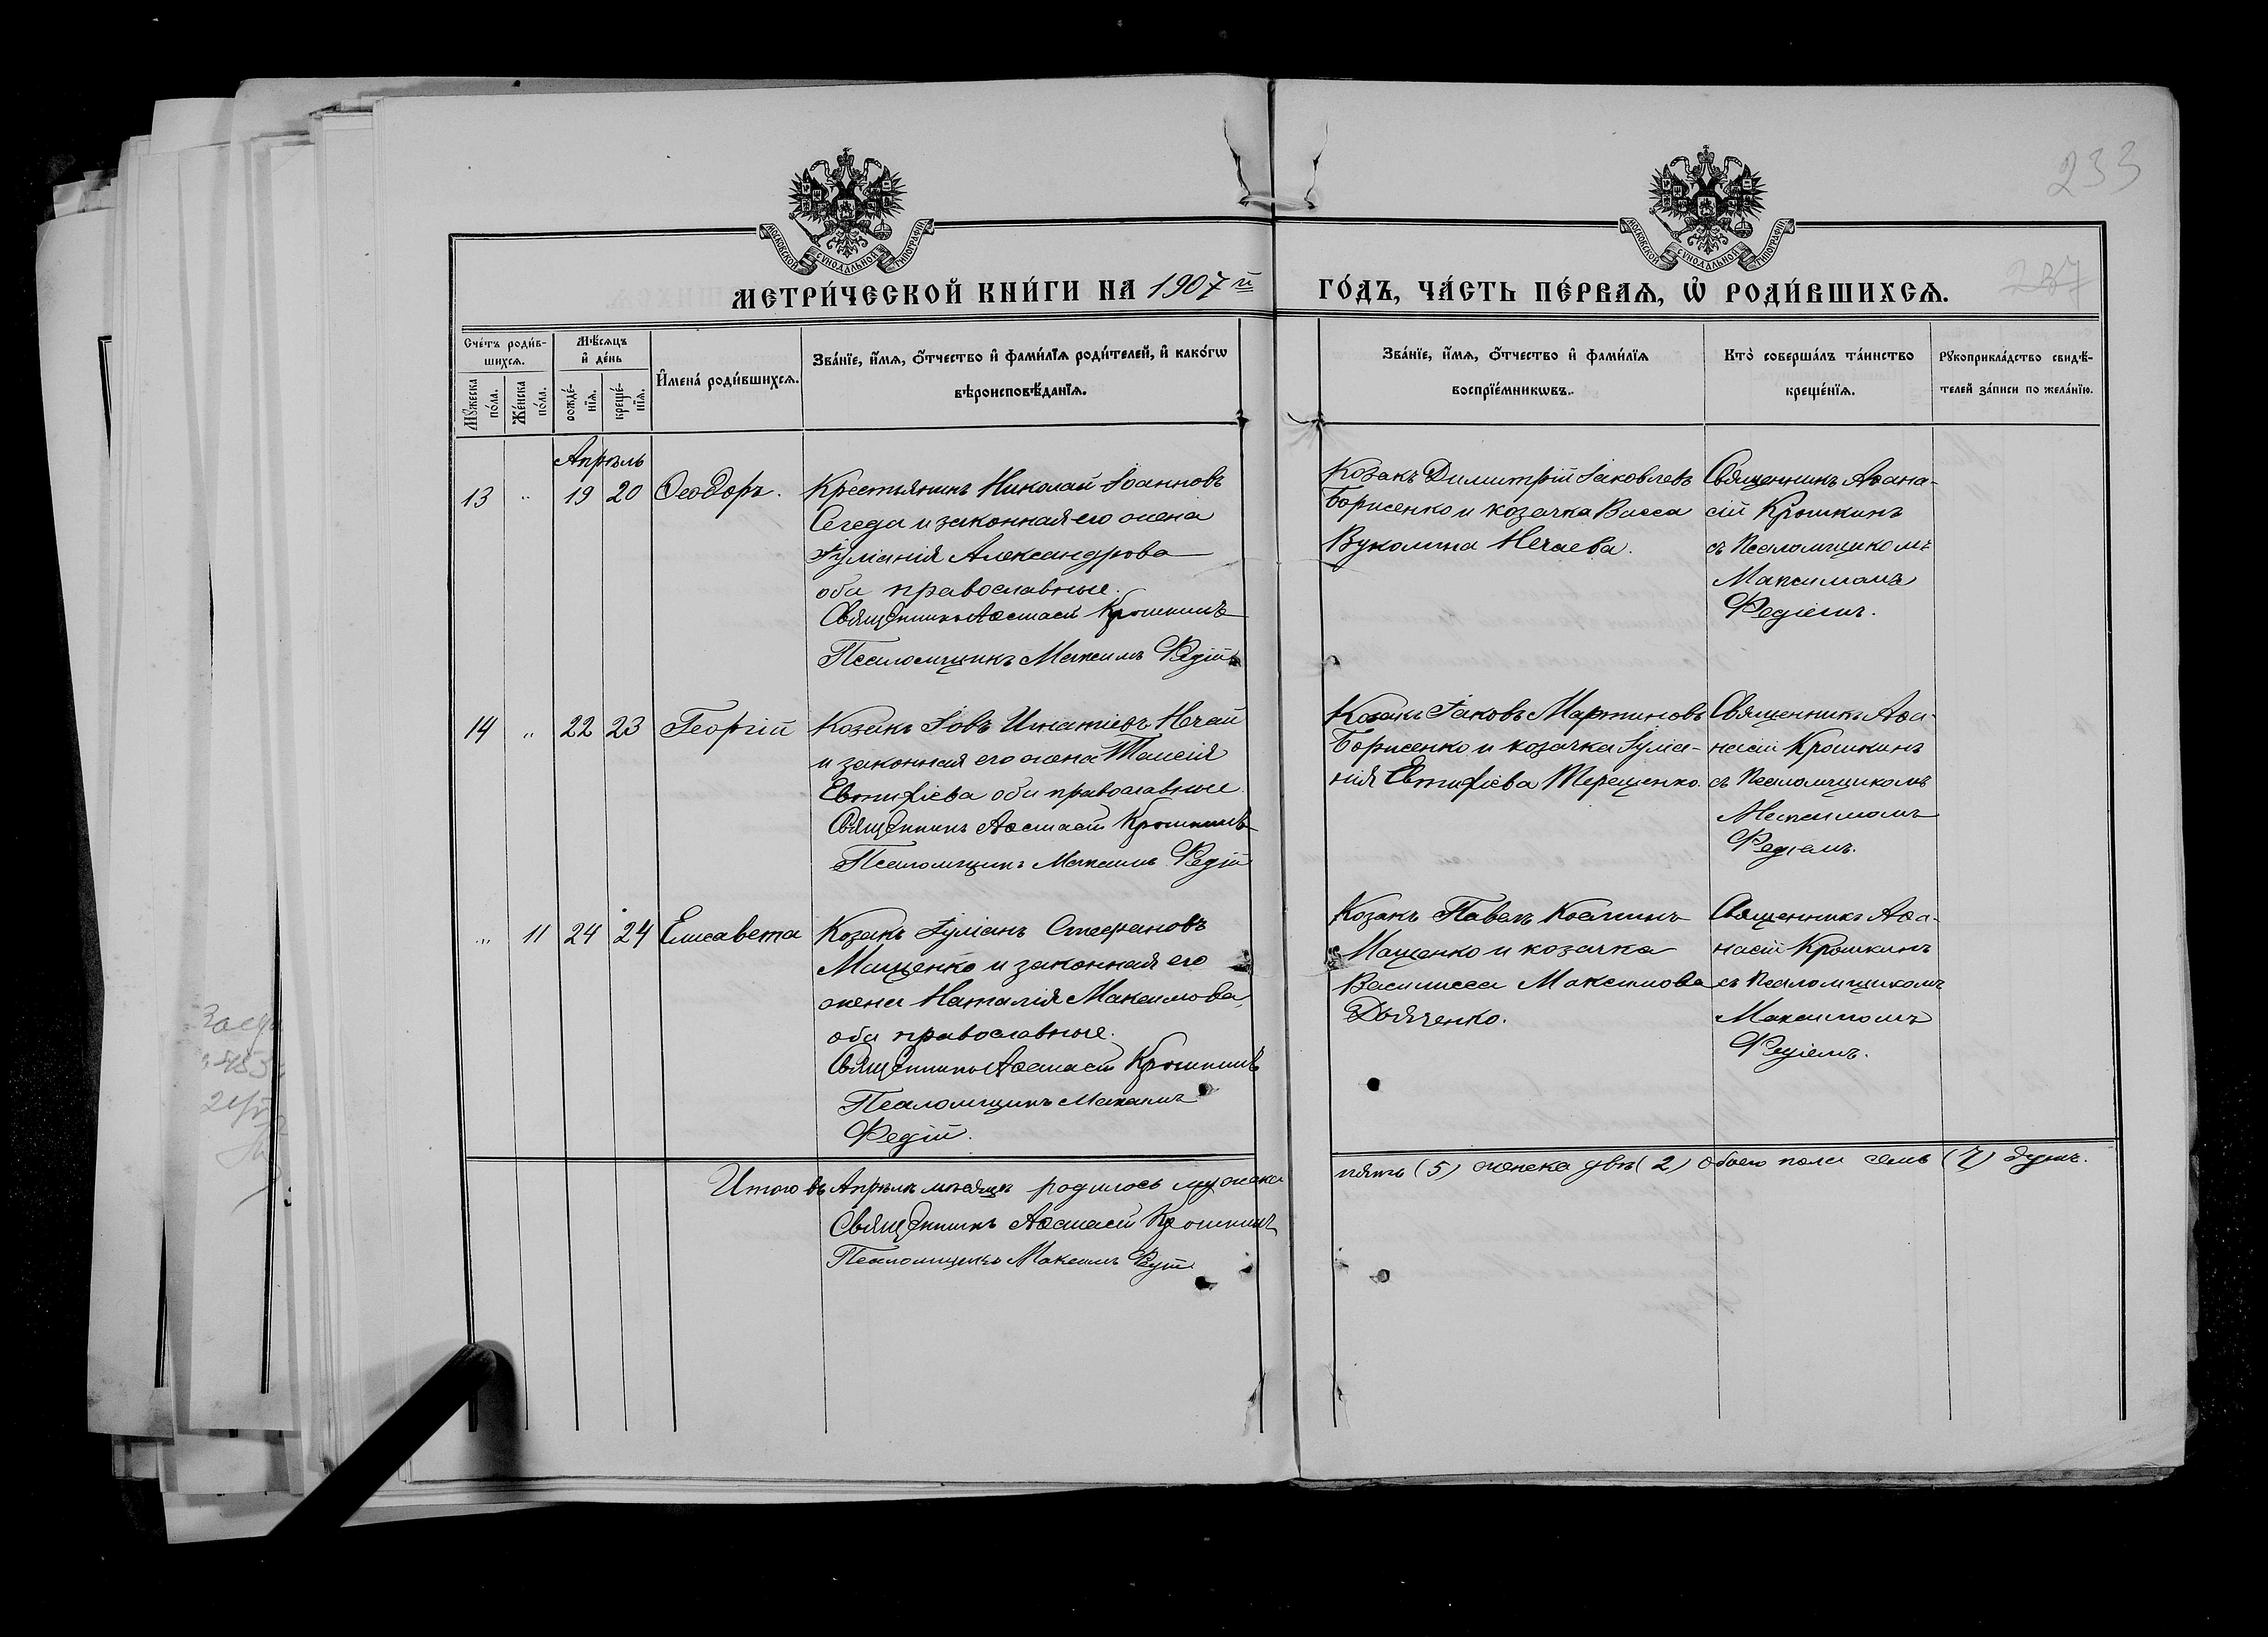 233
МОСКОВСКОЙ СУНОДАЛЬНОЙ ТИПОГРАФІИ
МОСКОВСКОЙ СУНОДАЛЬНОЙ ТИПОГРАФІИ
МЕТРИ́ЧЕСКОЙ КНИ́ГИ НА 1907й
ГО́ДЪ, ЧА́СТЬ ПЕ́РВАѦ, Ѽ РОДИ́ВШИХСѦ.
237
Сче́тъ роди́в-
шихсѧ.
Мꙋжеска по́ла.
Же́нска по́ла.
Мѣ́сѧцъ и҆ де́нь
рожде́-нїѧ.
креще́-нїѧ.
И҆мена̀ роди́вшихсѧ.
Зва́нїе, и҆́мѧ, ѻ҆́тчество и҆ фами́лїѧ роди́телей, и҆ како́гѡ
вѣроисповѣ́данїѧ.
Зва́нїе, и҆́мѧ, ѻ҆́тчество и҆ фами́лїѧ
воспрїе́мникѡвъ.
Кто̀ соверша́лъ та́инство
креще́нїѧ.
Рꙋкоприкла́дство свидѣ́-
телей за́писи по жела́нїю.
Апрѣль
13 " 19 20 Ѳеодоръ.
Крестьянинъ Николай Іоанновъ
Сегеда и законная его жена
Іуліанія Александрова
оба православные.
Священникъ Аѳанасій Крошкинъ
Псаломщикъ Максимъ Редій
Козакъ Димитрій Іаковлевъ
Борисенко и козачка Васса
Вуколина Нечаева.
Священникъ Аѳана-
сій Крошкинъ
съ Псаломщикомъ
Максимомъ
Редіемъ.
14 " 22 23 Георгій
Козакъ Іовъ Игнатіевъ Нечай
и законная его жена Таисія
Евтифіева оба православные.
Священникъ Аѳанасій Крошкинъ
Псаломщикъ Максимъ Редій
Козакъ Іаковъ Мартиновъ
Борисенко и козачка Іуліа-
нія Евтифіева Терещенко.
Священникъ Аѳа-
насій Крошкинъ
съ Псаломщикомъ
Максимомъ
Редіемъ.
" 11 24 24 Елисавета
Козакъ Іуліанъ Стефановъ
Мащенко и законная его
жена Наталія Максимова,
оба православные.
Священникъ Аѳанасій Крошкинъ
Псаломщикъ Максимъ
Редій.
Козакъ Павелъ Косминъ
Мащенко и козачка
Василисса Максимова
Дьяченко.
Священникъ Аѳа-
насій Крошкинъ
съ Псаломщикомъ
Максимомъ
Редіемъ.
Итого въ Апрѣлѣ мѣсяцѣ родилось мужеска
пять (5) женска двѣ (2) обоего пола семь (7) душъ.
Священникъ Аѳанасій Крошкинъ
Псаломщикъ Максимъ Редій